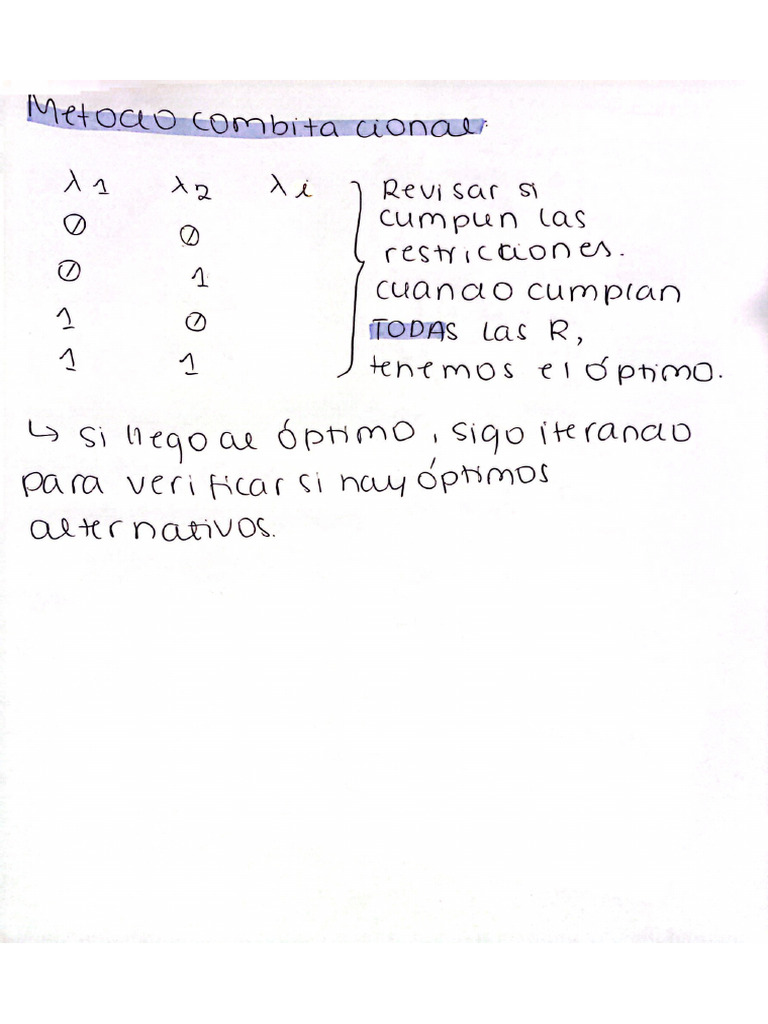 Metodo combitacional:
λ1 λ2 λi } Revisar si
cumplen las
0 0
restricciones.
0 1
cuando cumplan
1 0 TODAS las R,
1 1 tenemos el óptimo.
↳ si llego al óptimo, sigo iterando
para verificar si hay óptimos
alternativos.